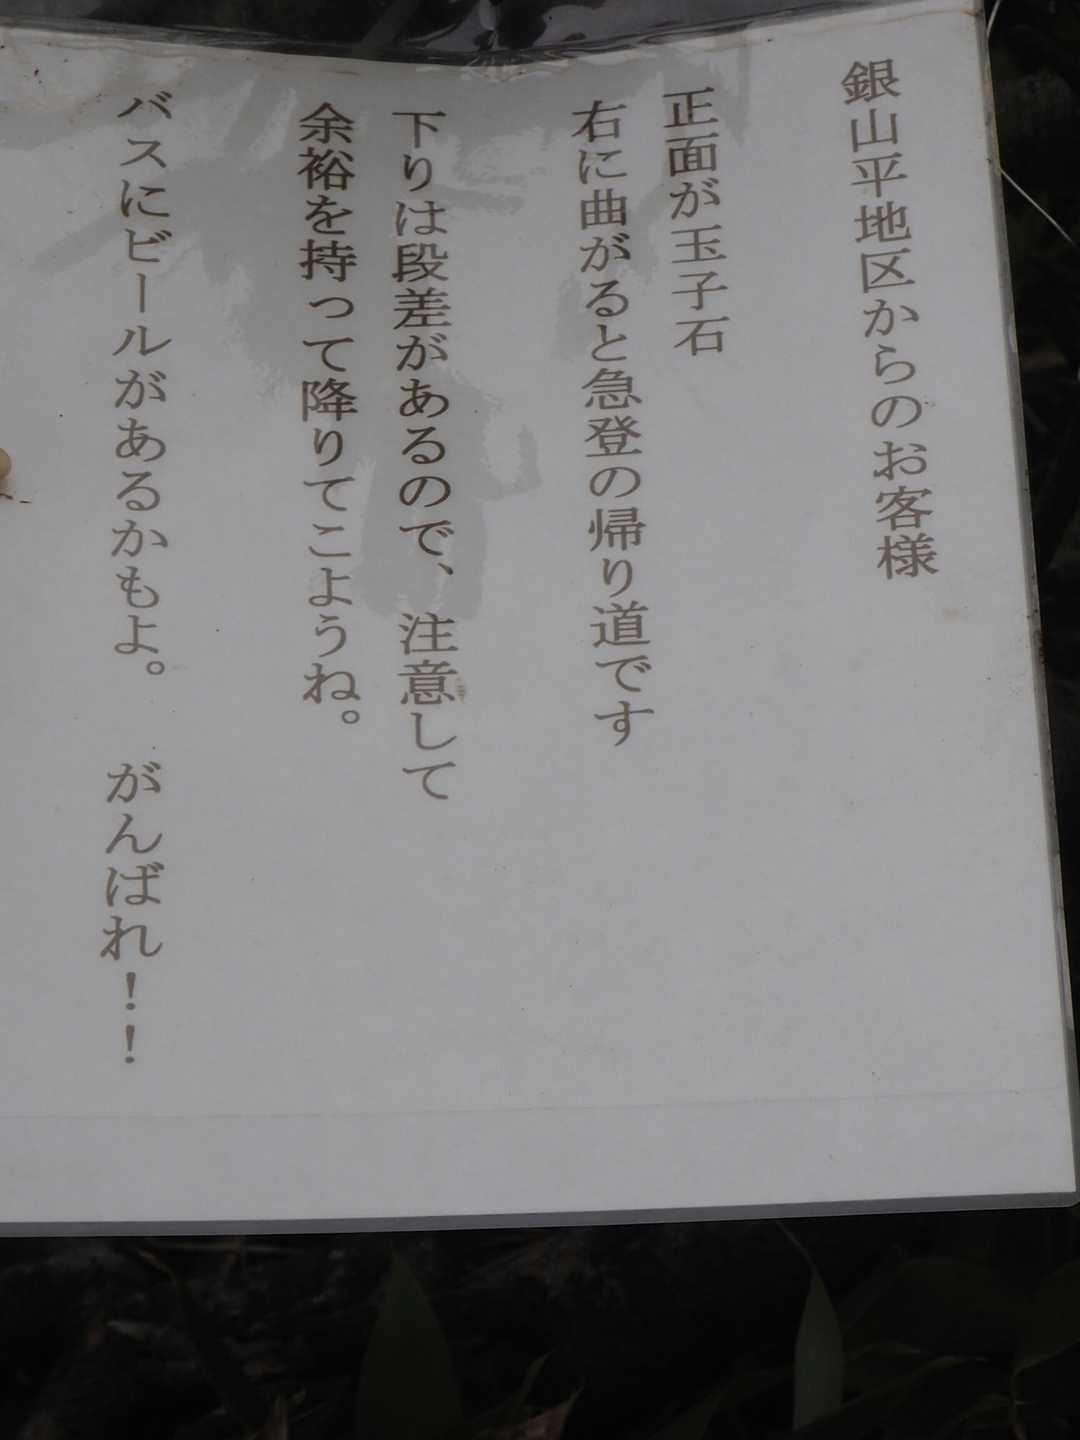 銀山平地区からのお客様
正面が玉子石
右に曲がると急登の帰り道です
下りは段差があるので、注意して
余裕を持って降りてこようね。
バスにビールがあるかもよ。　がんばれ！！